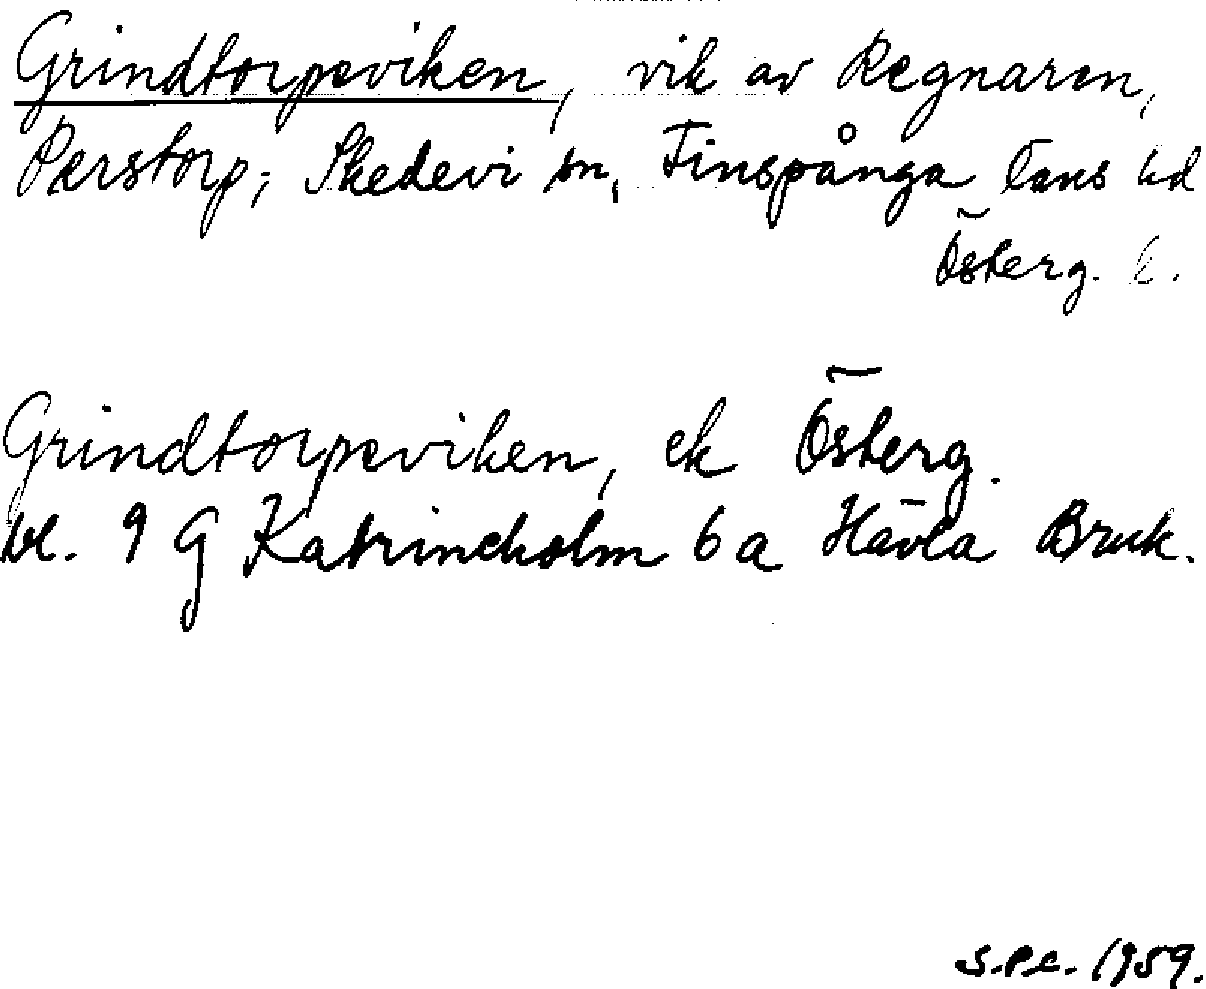 Grindtorpsviken, vik av Regnaren,
Perstorp, Skedevi sn, Finspånga läns hd
Österg. l.
Grindtorpsviken, ek Österg.
bl. 9 G Katrineholm 6 a Hävla Bruk.
1959.